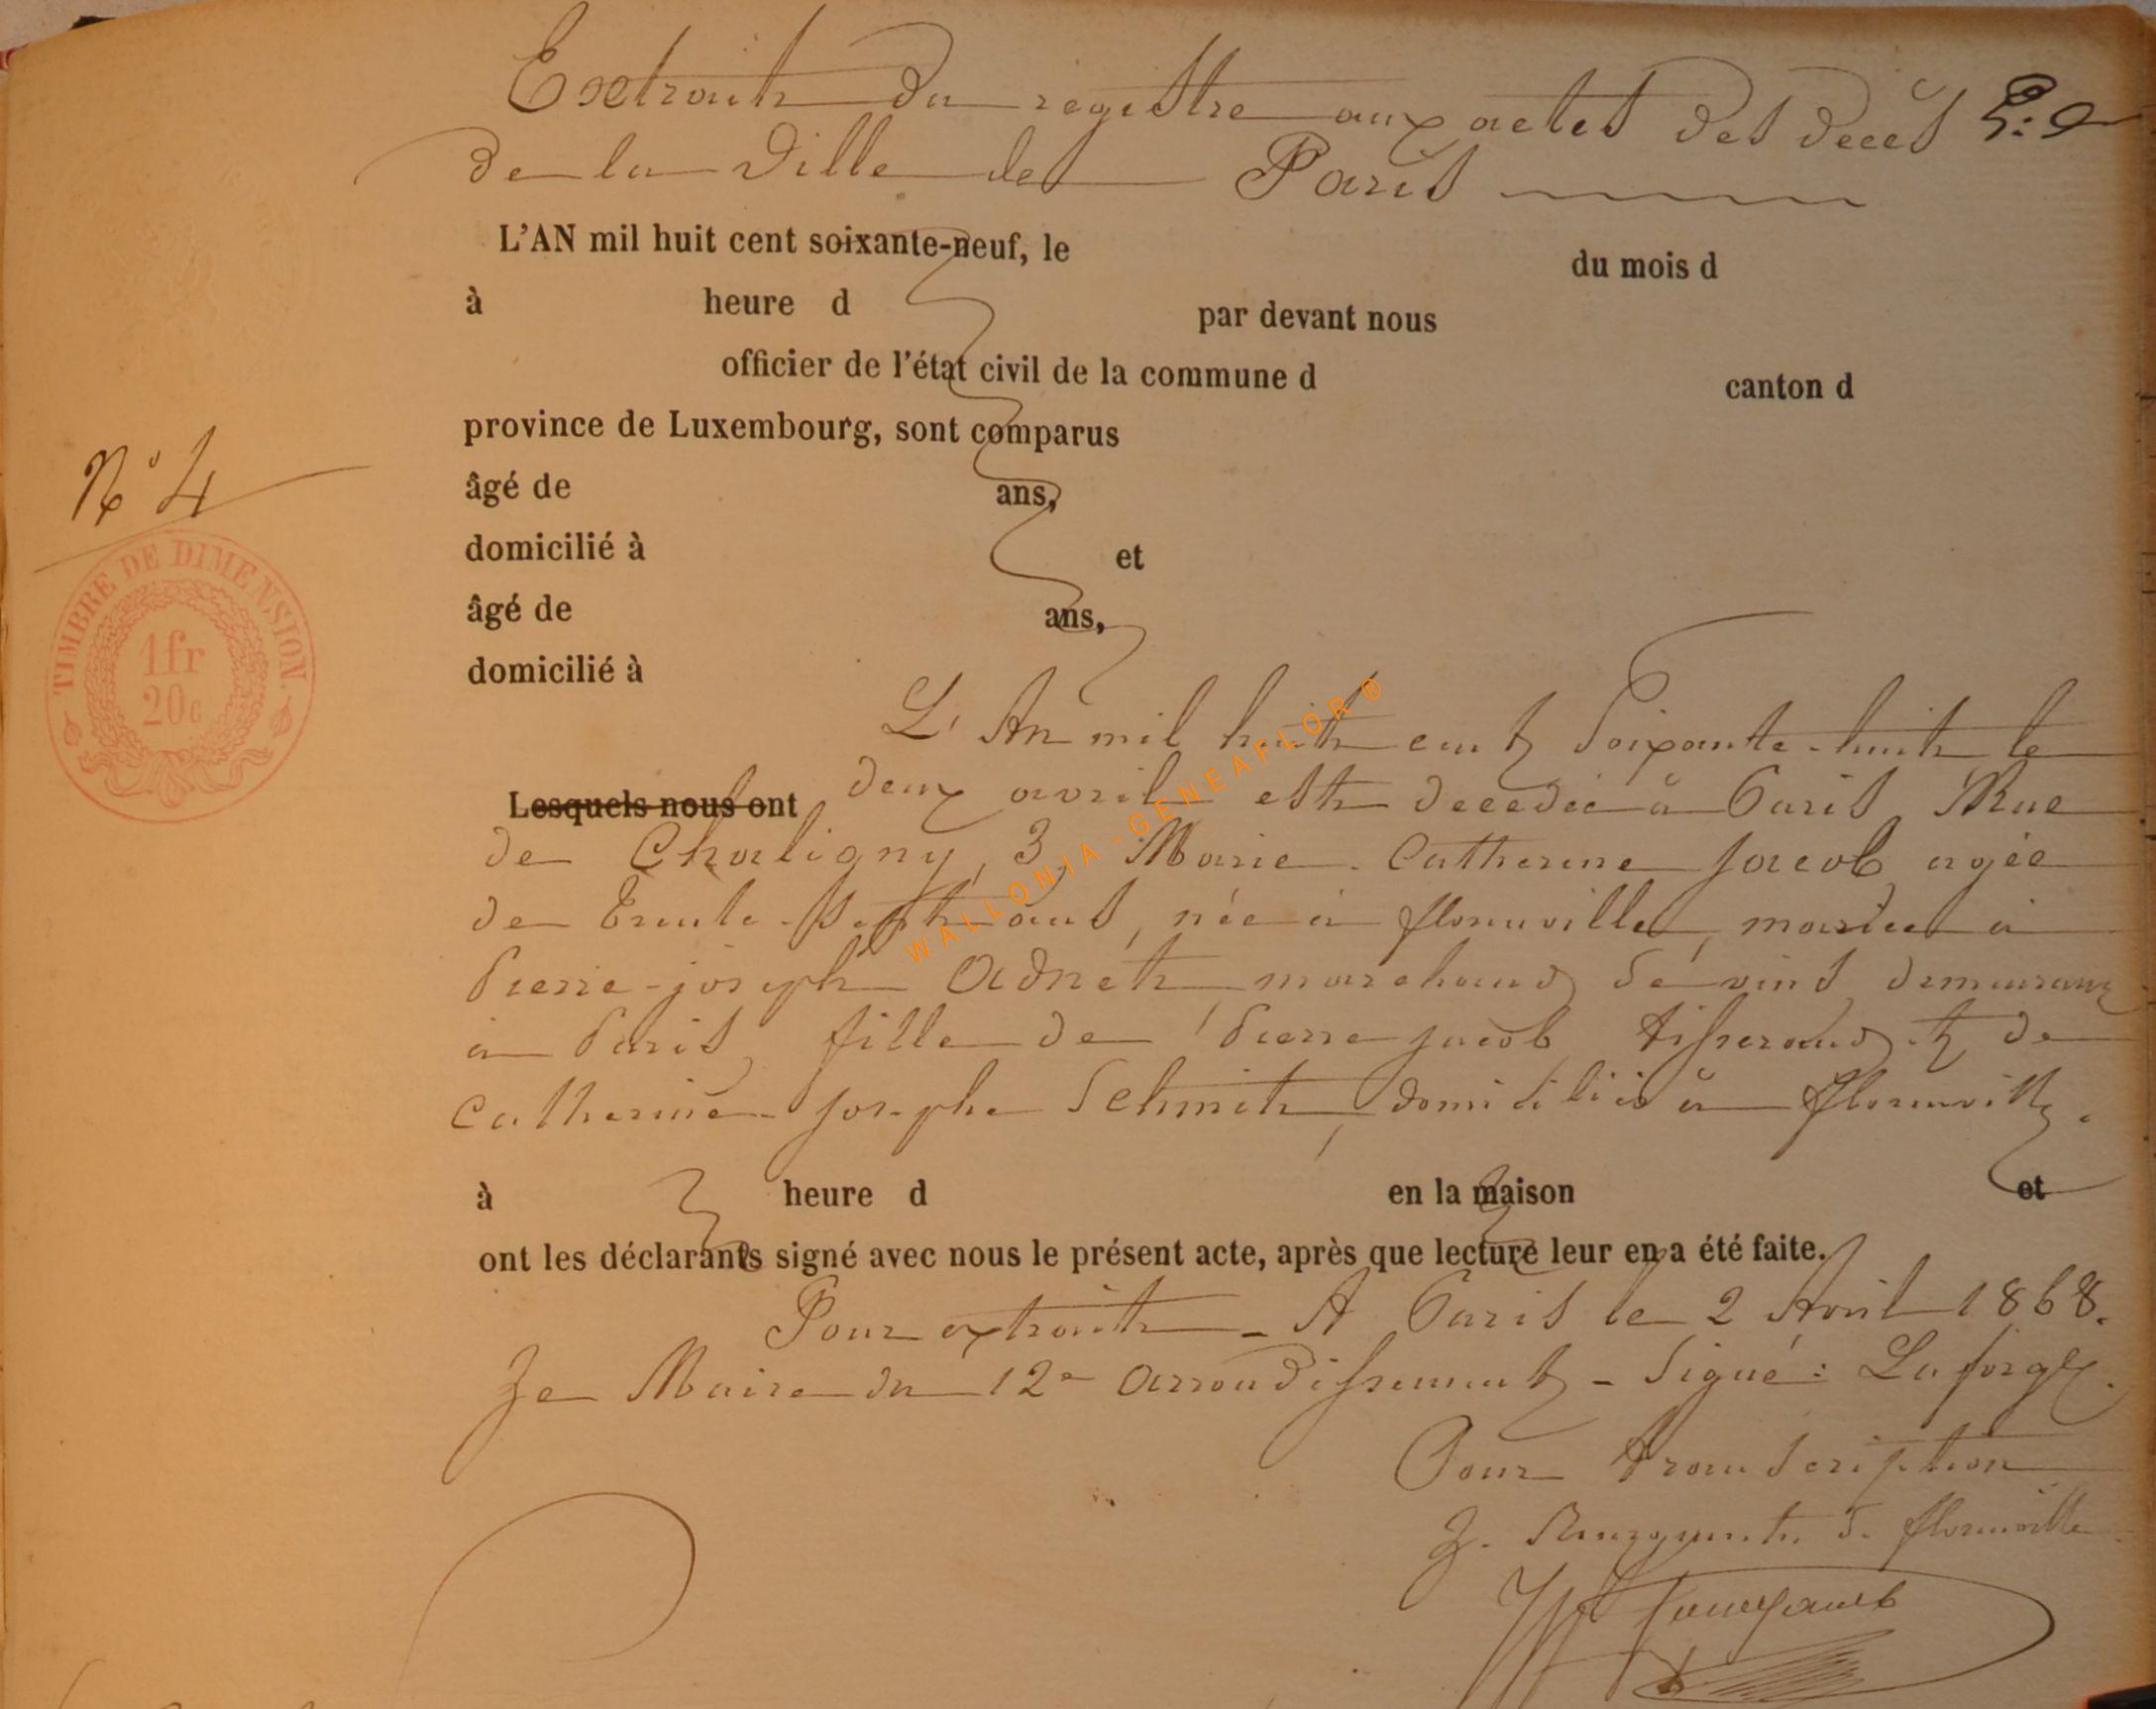 Extrait du registre aux actes des décès
de la Ville de Paris
L'AN mil huit cent soixante-neuf, le du mois d
à heure d par devant nous
officier de l'état civil de la commune d canton d
province de Luxembourg, sont comparus
N° 4
âgé de ans,
domicilié à et
âgé de ans,
domicilié à
TIMBRE DE DIMENSION.
1fr
20c
L'An mil huit cent Soixante-huit le
Lesquels nous ont deux avril est décédée à Paris Rue
de Chaligny, 3, Marie-Catherine Jacob agée
de Trente-sept ans, née à florenville, mariée à
Pierre-joseph Adnet, marchand de vins demeurant
à Paris, fille de Pierre jacob tisserand et de
Catherine-josephe Schmit, domiciliés à florenville.
à heure d en la maison et
ont les déclarants signé avec nous le présent acte, après que lecture leur en a été faite.
Pour extrait - A Paris le 2 Avril 1868.
Le Maire du 12e arrondissement - Signé: Laforge.
Pour transcription
de florenville
WALLONIA-GENEAFLOR®